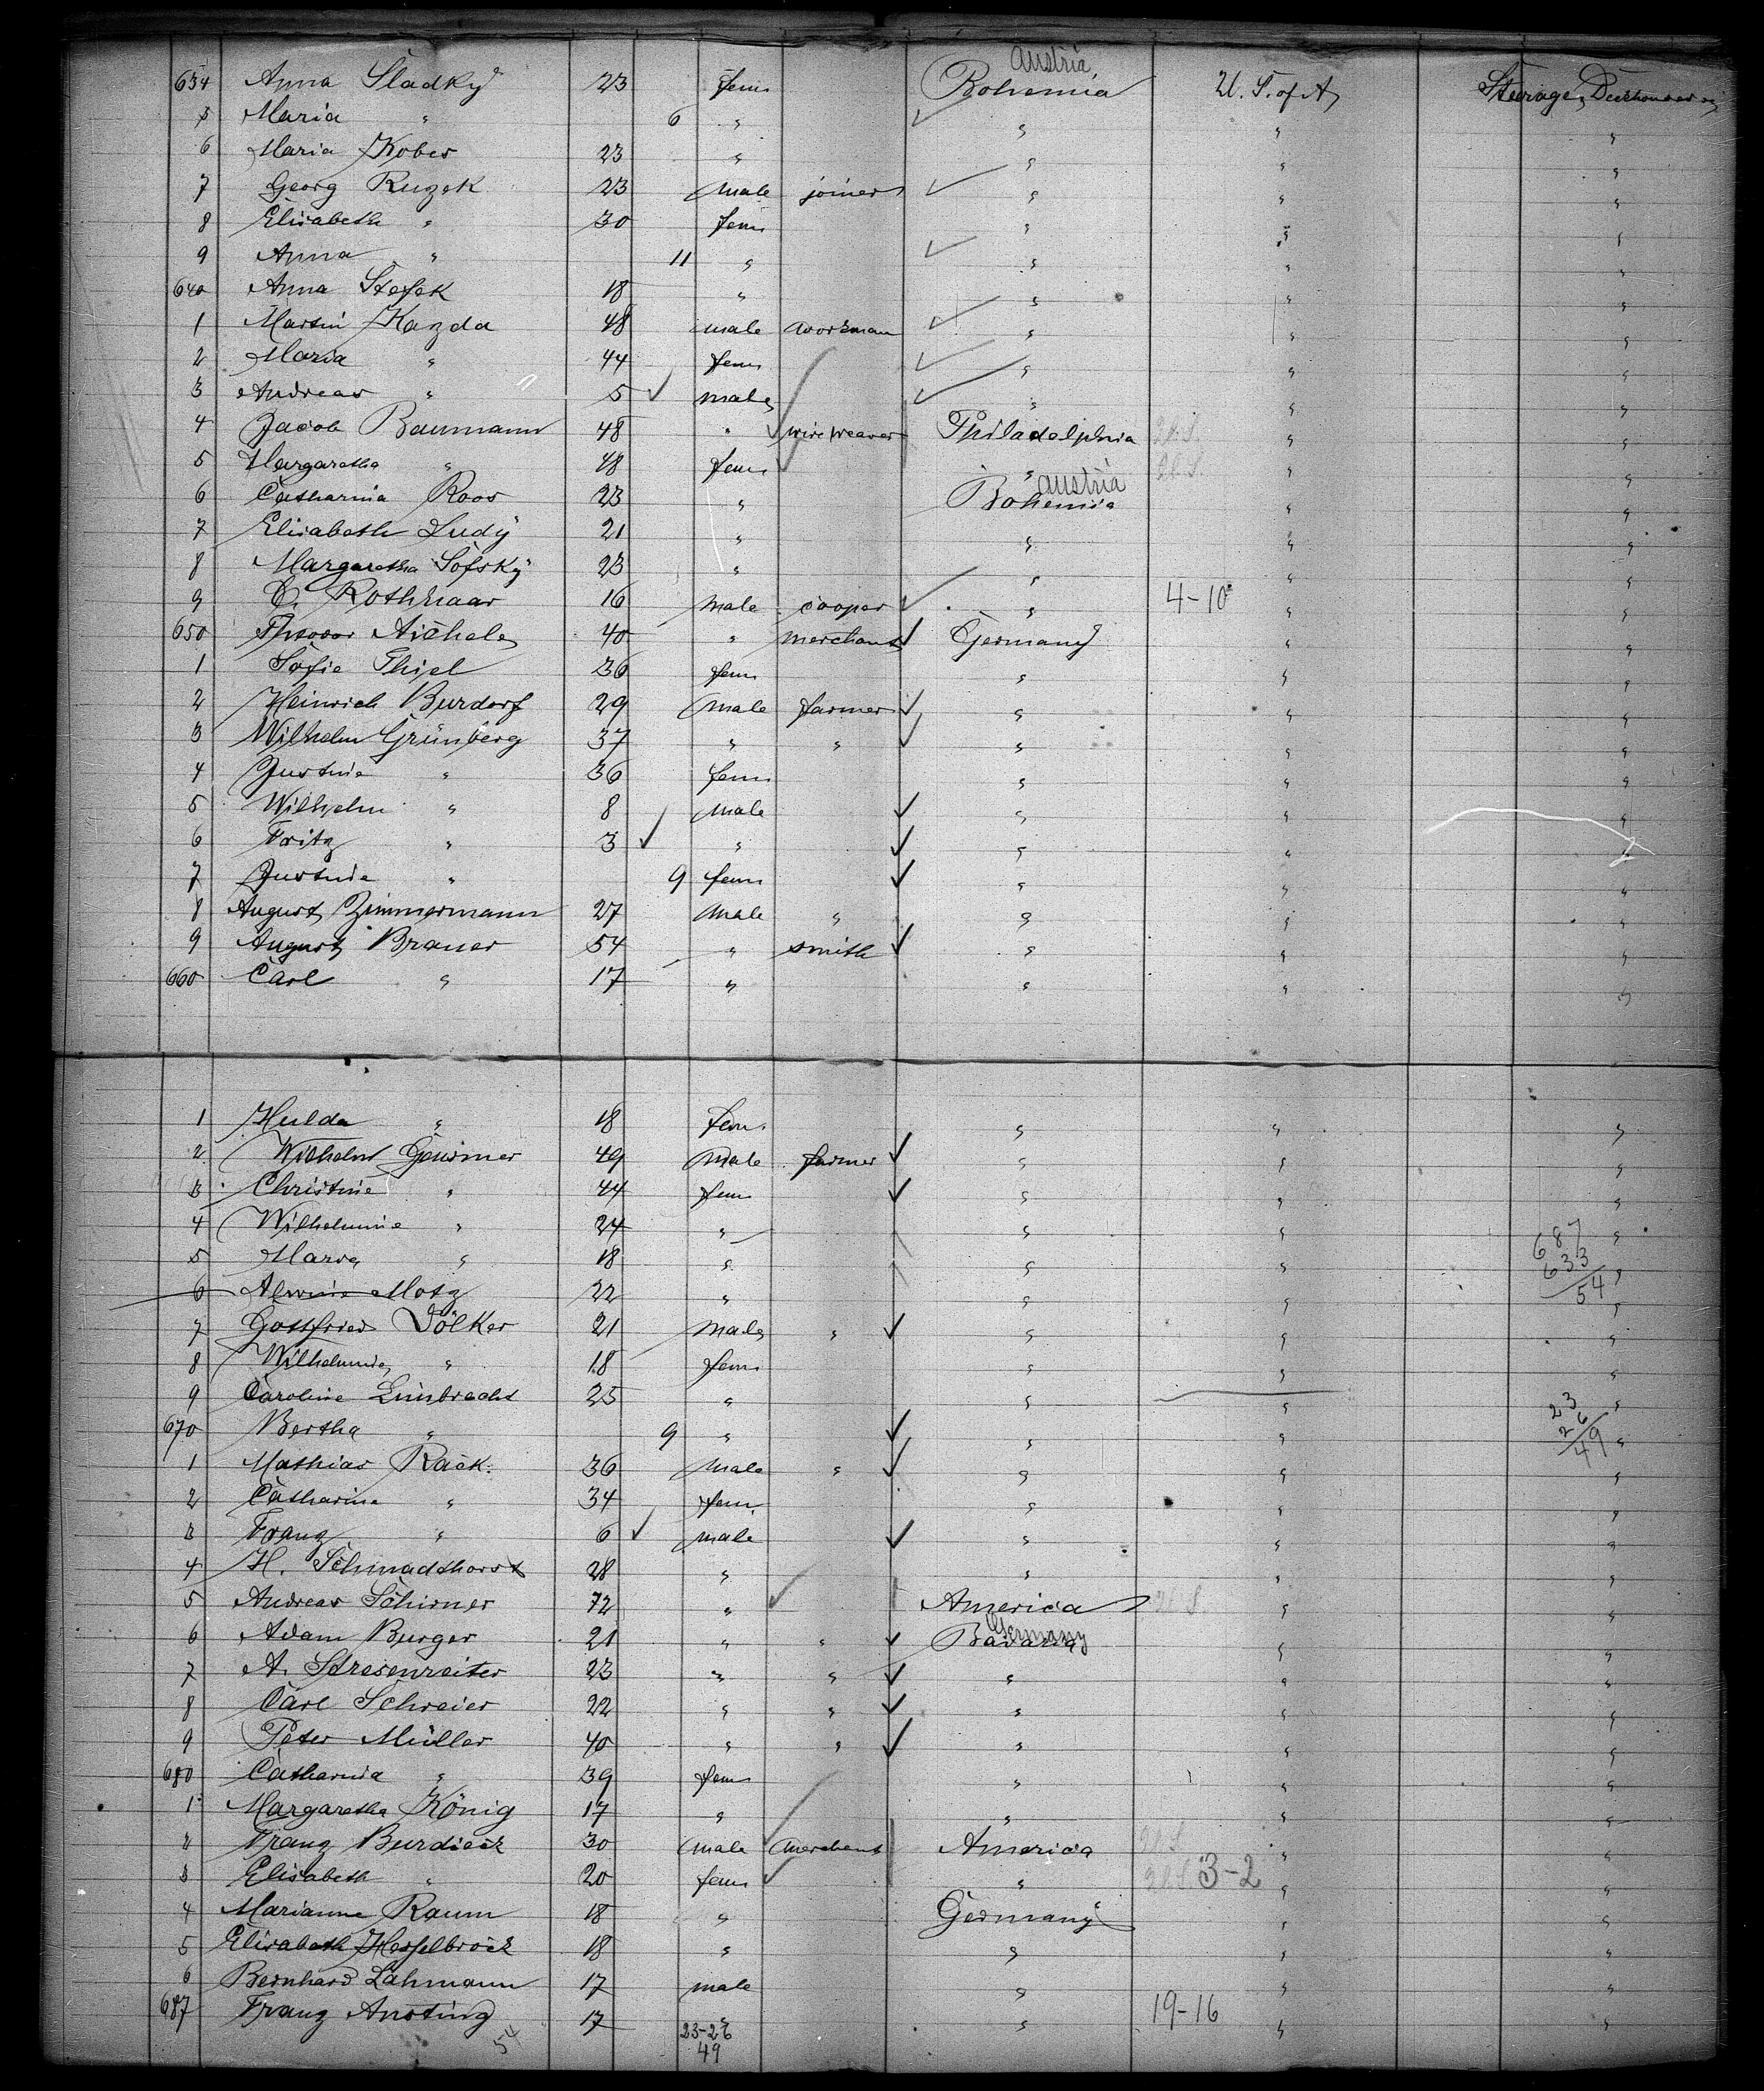 Austria
634 Anna Sladky 23 fem Bohemia U. S. of A. Steerage,
5 Maria " 6 " " " "
6 Maria Kober 23 " " " "
7 Georg Ruzek 23 male joiner " " "
8 Elisabeth " 30 fem " " "
9 Anna " 11 " " " "
640 Anna Stefek 18 " " " "
1 Martin Kazda 48 male workman " " "
2 Maria " 44 fem " " "
3 Andreas " 5 male " " "
4 Jacob Baumann 48 " wire weaver Philadelphia U.S. " "
5 Margaretha " 48 fem " U.S. " "
Austria
6 Catharina Roos 23 " Bohemia " "
7 Elisabeth Ludy 21 " " " "
8 Margaretha Sofsky 23 " " " "
9 C. Rothhaar 16 male cooper " 4-10 " "
650 Aichele 40 " merchant Germany " "
1 Sofie Thiel 36 fem " " "
2 Heinrich Burdorf 29 male farmer " " "
3 Wilhelm Grünberg 37 " " " " "
4 Justine " 36 fem " " "
5 Wilhelm " 8 male " " "
6 Fritz " 3 " " " "
7 Justine " 9 fem " " "
8 August Zimmermann 27 male " " " "
9 August Brauer 54 " smith " " "
660 Carl " 17 " " " "
1 Hulda " 18 fem. " " "
2 Wilhelm 49 male farmer " " "
3 Christine " 44 fem " " "
4 Wilhelmine " 24 " " " "
687
633
54
5 Maria " 18 " " " "
6 Alwine Motz 22 " " " "
7 Gottfried Völker 21 male " " " "
8 Wilhelmine " 18 fem " " "
9 Caroline Limbrecht 25 " " " "
23
26
49
670 Bertha " 9 " " " "
1 Mathias Rack 36 male " " " "
2 Catharina " 34 fem " " "
3 Franz " 6 male " " "
4 H. Schmadthorst 28 " " " "
5 Andreas Schirmer 72 " America U.S. " "
Germany
6 Adam Burger 21 " " Bavaria " "
7 A. Stresenreiter 23 " " " " "
8 Carl Schreier 22 " " " " "
9 Peter Müller 40 " " " " "
680 Catharina " 39 fem " " "
1 Margaretha König 17 " " " "
2 Franz Burdieck 30 male merchant America U.S. " "
3 Elisabeth " 20 fem " U.S. 3-2 " "
4 Marianne Raum 18 " Germany " "
5 Elisabeth Hesselbrock 18 " " " "
6 Bernhard Lahmann 17 male " " "
687 Franz Ansting 17 " " 19-16 " "
54 23-26
49